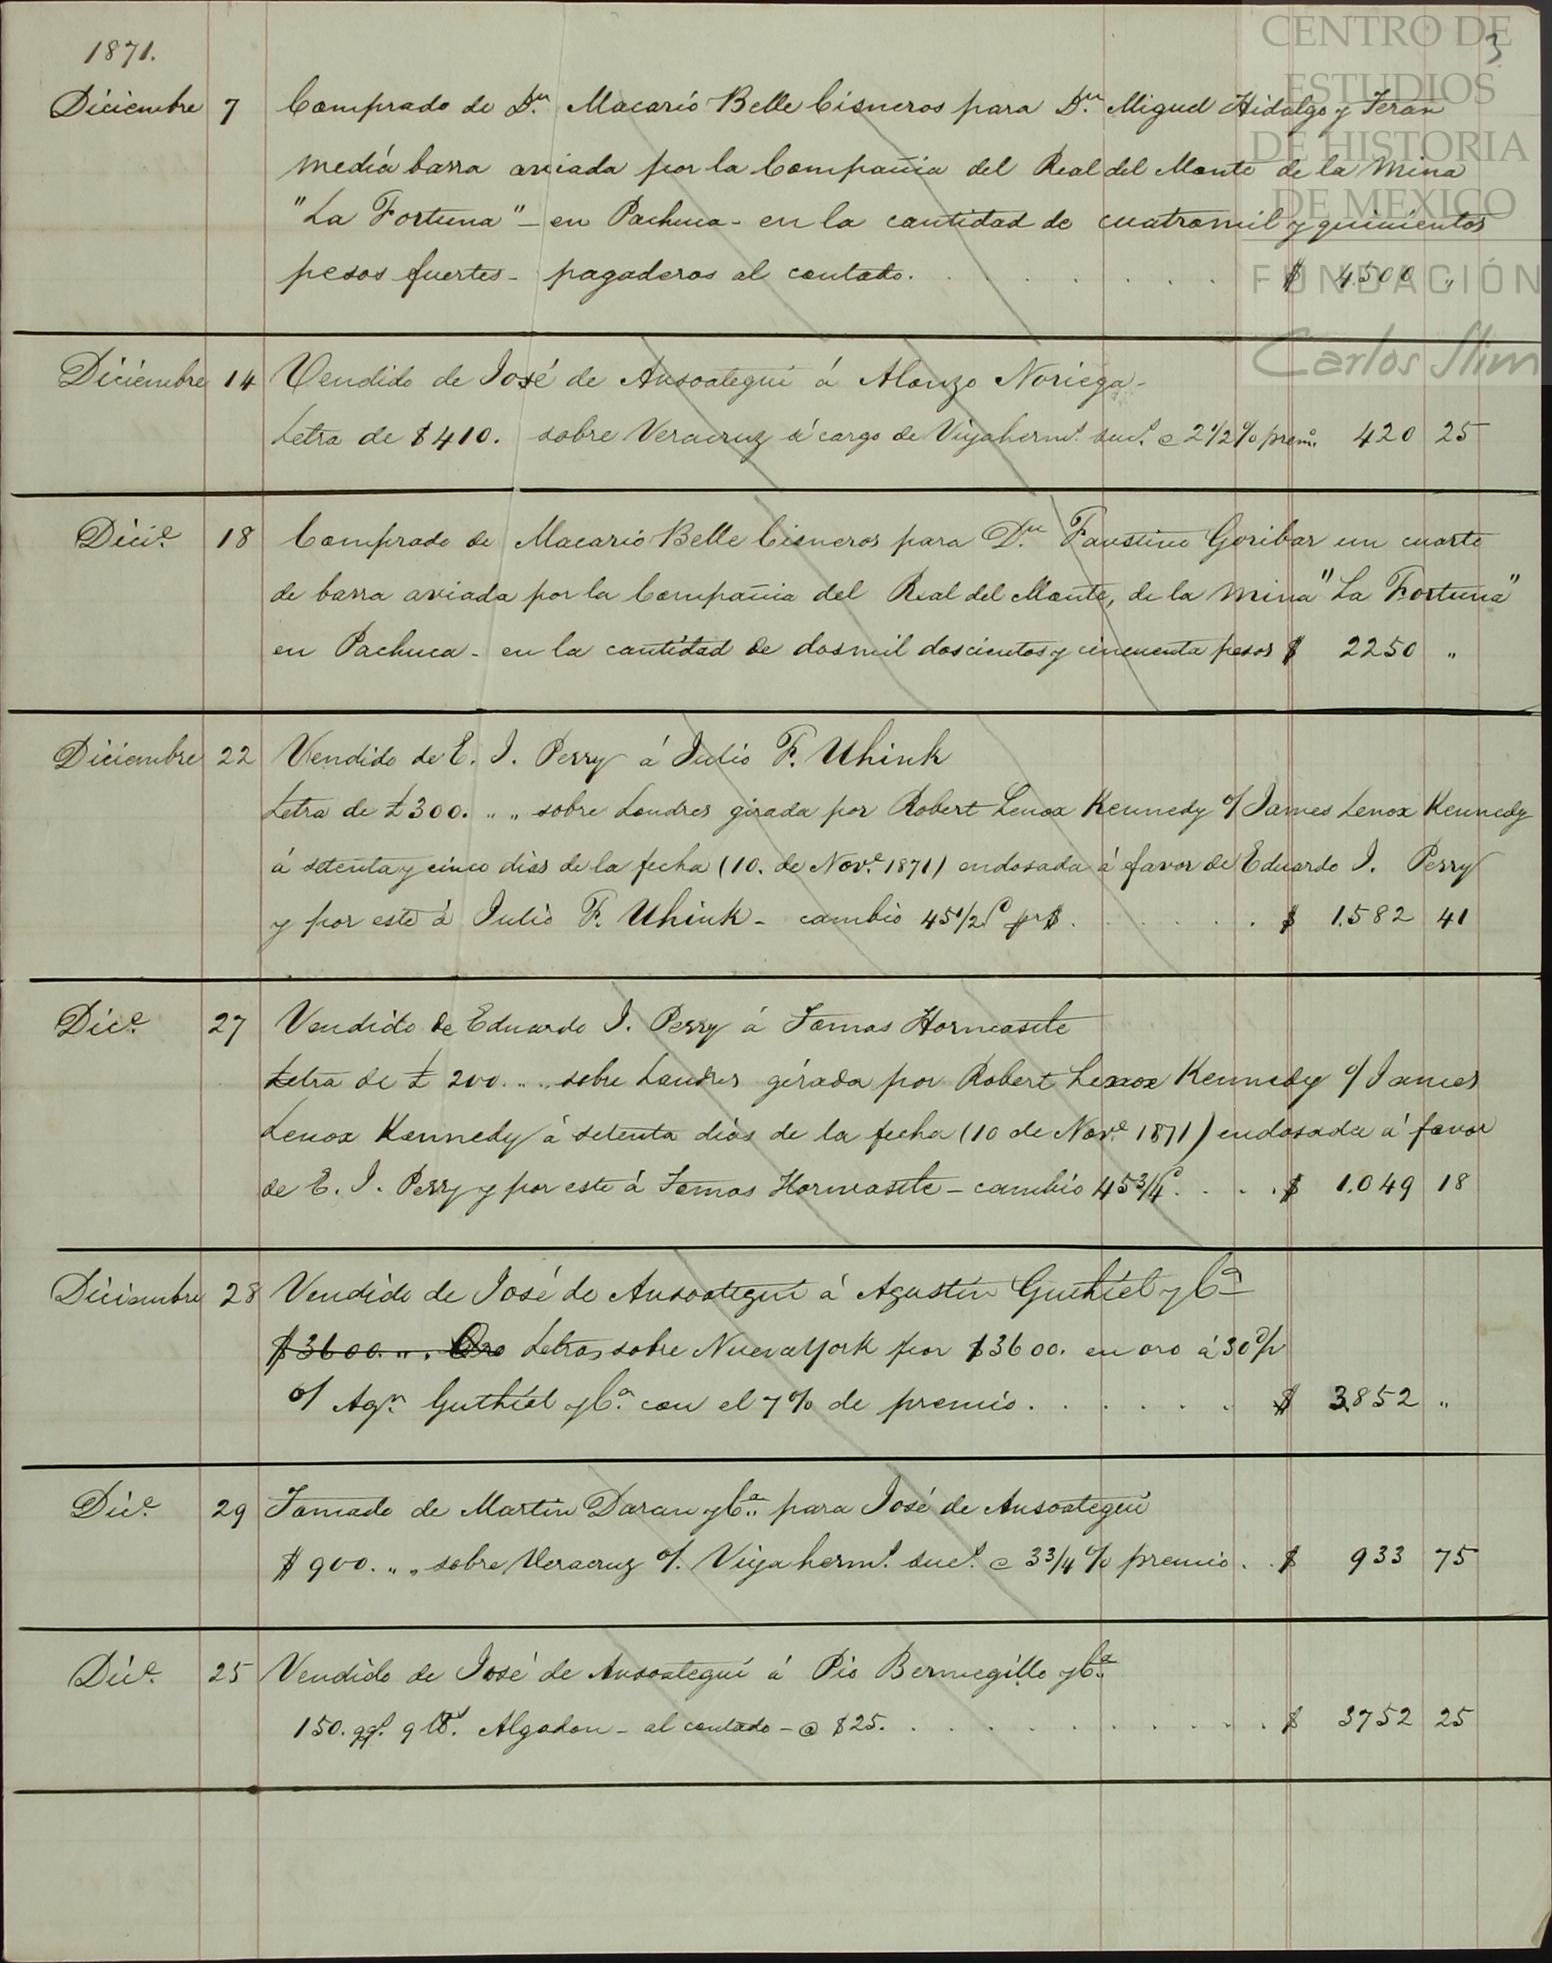 1871.
3
Diciembre 7 Comprado de Dn. Macario Belle Cisneros para Dn. Miguel Hidalgo y Teran
media barra aviada por la Compañia del Real del Monte de la Mina
"La Fortuna" - en Pachuca - en la cantidad de cuatromil y quinientos
pesos fuertes - pagaderos al contado. . . . . . . . $ 4.500 "
Diciembre 14 Vendido de José de Ansoategui á Alonzo Noriega -
Letra de $410. sobre Veracruz á cargo de Viya herms. sucs. @ 2 1/2 % premo. 420 25
Dicie. 18 Comprado de Macario Belle Cisneros para Dn. Faustino Goribar un cuarto
de barra aviada por la Compañia del Real del Monte, de la Mina "La Fortuna"
en Pachuca - en la cantidad de dosmil doscientos y cincuenta pesos $ 2250 "
Diciembre 22 Vendido de E. I. Perry á Julio F. Uhink
Letra de £300. " " sobre Londres girada por Robert Lenox Kennedy c/ James Lenox Kennedy
á setenta y cinco dias de la fecha (10. de Nove. 1871) endosada á favor de Eduardo I. Perry
y por este á Julio F. Uhink - cambio 45 1/2 d pr $. . . . . . $ 1.582 41
Dice. 27 Vendido de Eduardo I. Perry á Tomas Horncastle
Letra de £ 200. " " sobre Londres girada por Robert Lenox Kennedy c/ James
Lenox Kennedy á setenta dias de la fecha (10 de Nove. 1871) endosada á favor
de E. I. Perry y por este á Tomas Horncastle - cambio 45 3/4 d. . . . $ 1.049 18
Diciembre 28 Vendido de José de Ansoategui á Agustin Guthiel y Ca
$3600. " . Oro Letras sobre Nueva York por $3600. en oro á 30 d/v
c/ Agn. Guthiel y Ca. con el 7% de premio. . . . . . . $ 3.852 "
Dice. 29 Tomado de Martin Daran y Ca. para José de Ansoategui
$900. " " sobre Veracruz c/. Viya herms. sucs. @ 3 3/4 % premio. . $ 933 75
Dice. 25 Vendido de José de Ansoategui á Pio Bermegillo y Ca.
150. qqs. 9 lbs. Algodon - al contado - @ $25. . . . . . . . . . $ 3752 25
CENTRO DE
ESTUDIOS
DE HISTORIA
DE MEXICO
FUNDACIÓN
Carlos Slim